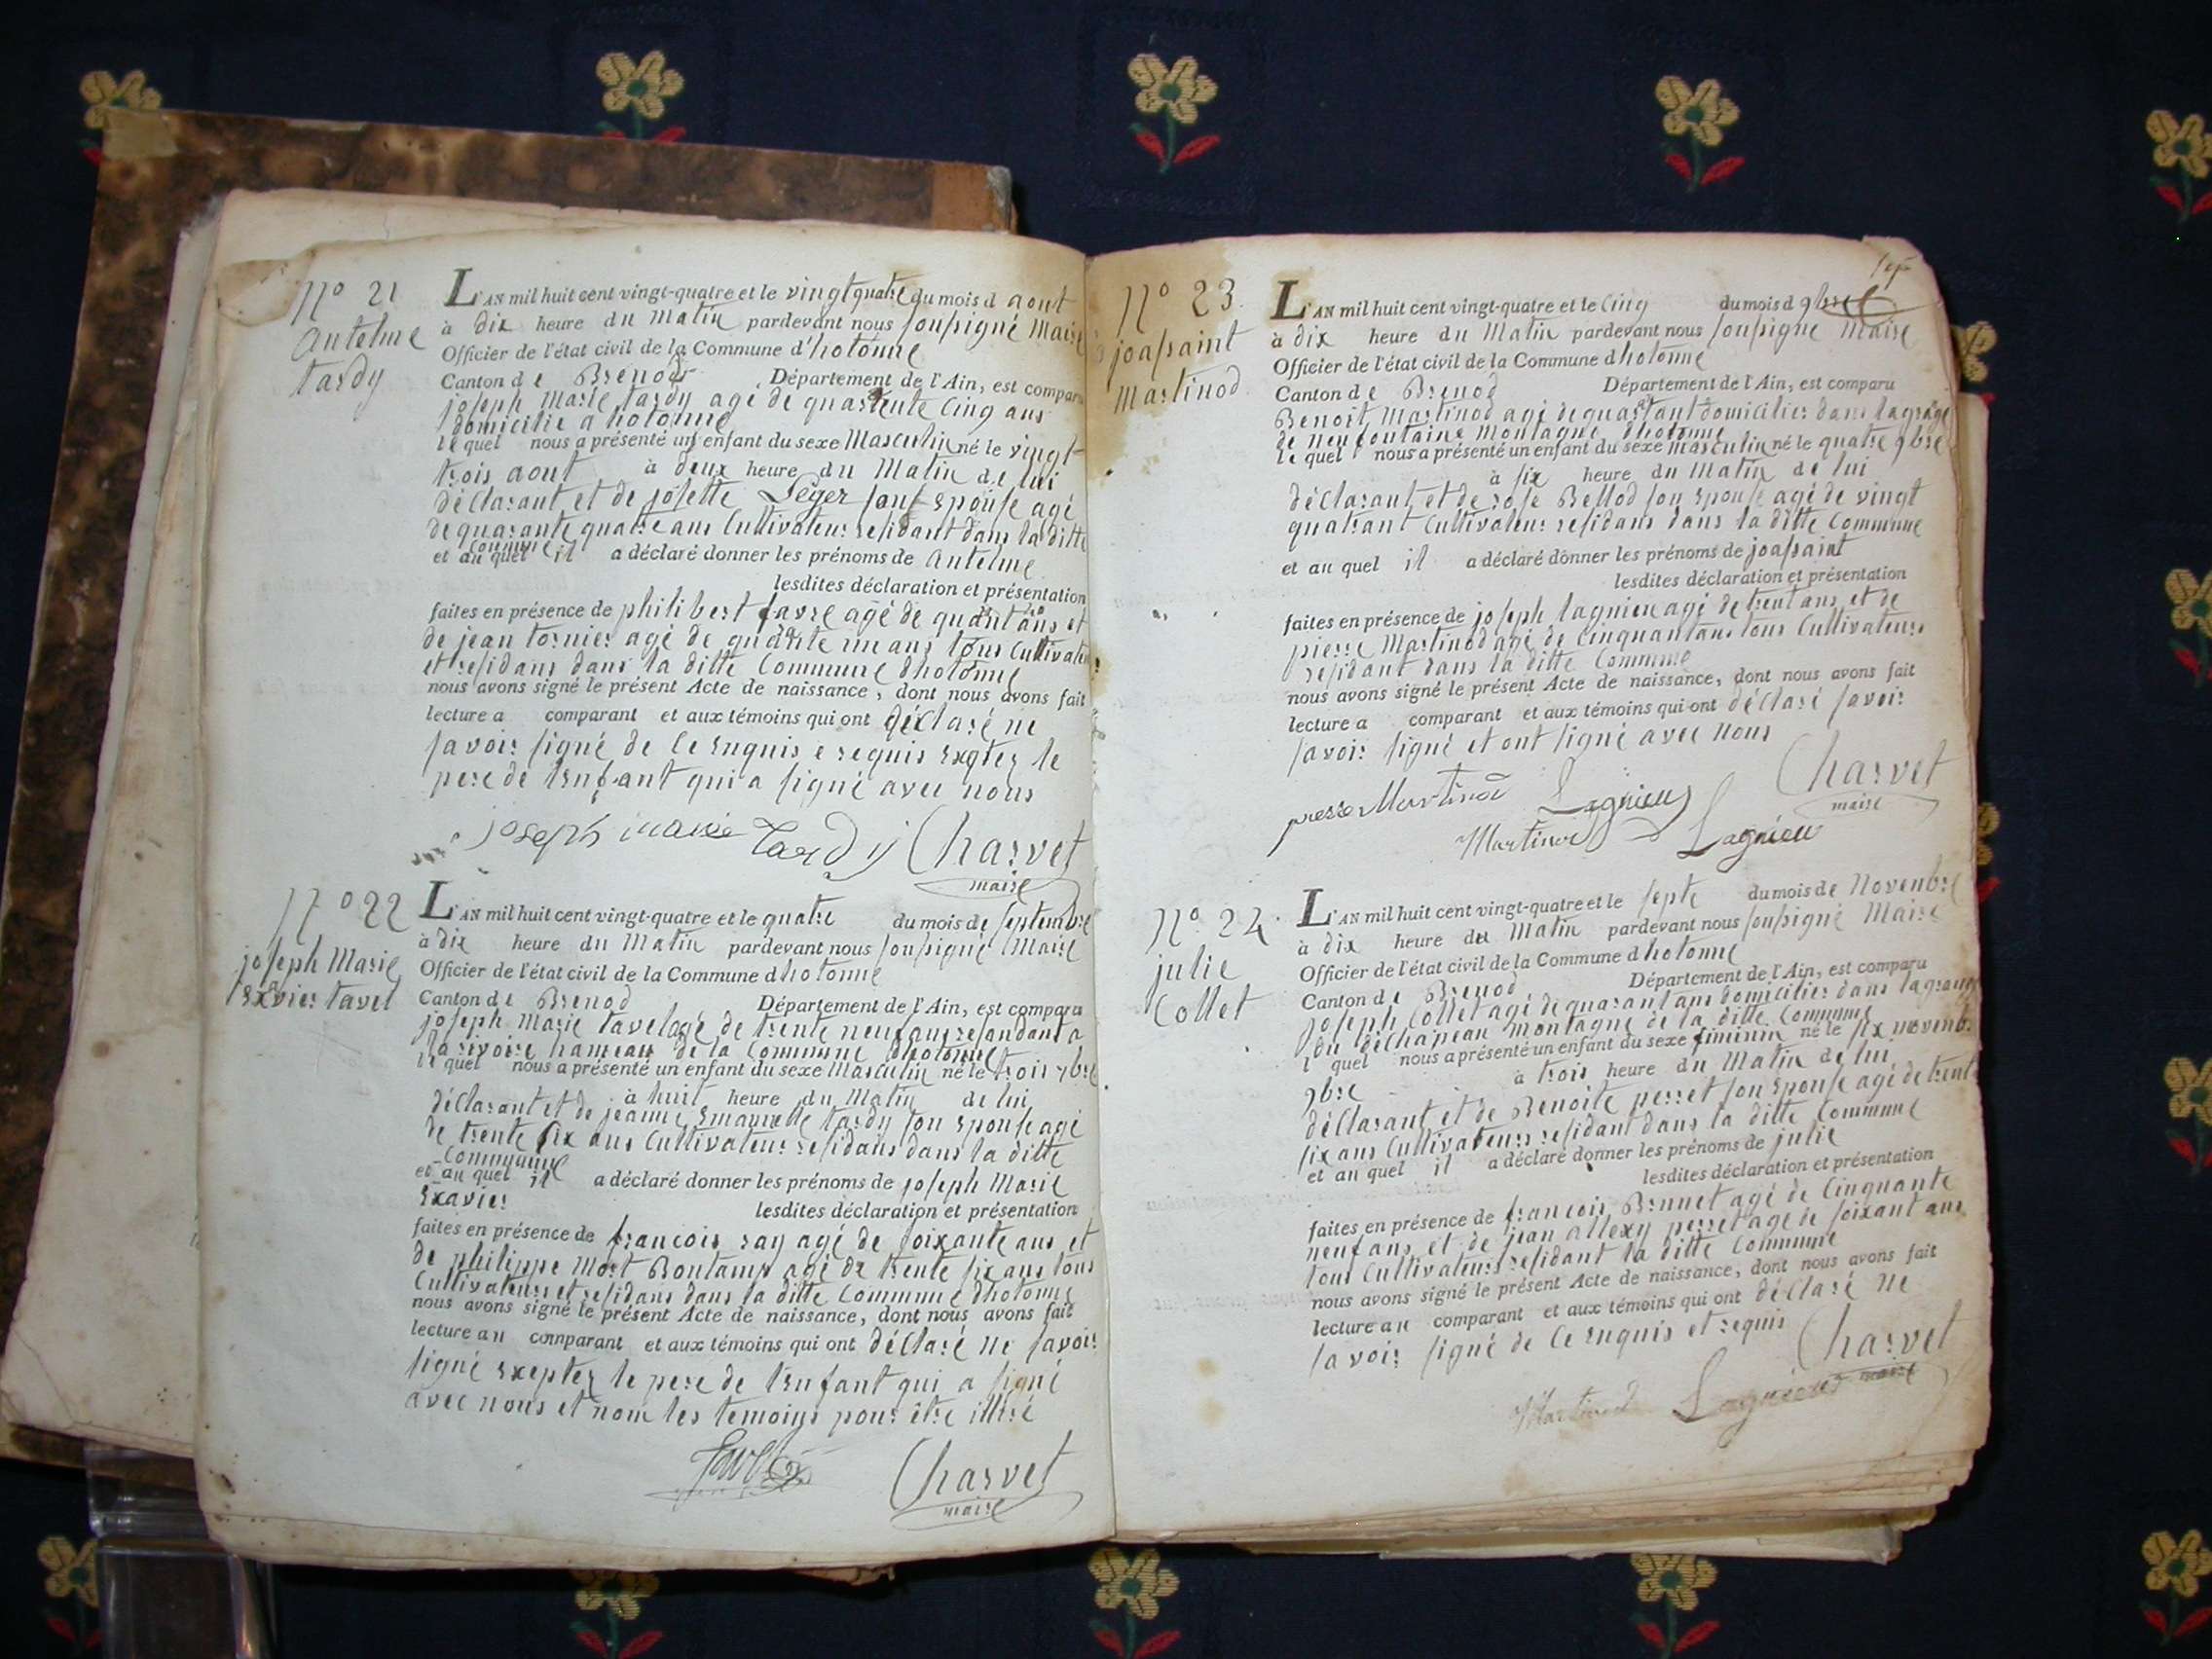 N° 21
Antelme
tardy
L'AN mil huit cent vingt-quatre et le vingt quatre du mois d aout
à dix heure du Matin pardevant nous soussigné Maire
Officier de l'état civil de la Commune d'hotonne
Canton de Brenod Département de l'Ain, est comparu
joseph Marie tardy agé de quarante Cinq ans
domicilié a hotonne
le quel nous a présenté un enfant du sexe Masculin né le vingt
trois aout à deux heure du Matin de lui
déclarant et de josette Léger sont Epouse agé
de quarante quatre ans Cultivateur residant dans la ditte
Commune
et au quel il a déclaré donner les prénoms de Antelme
lesdites déclaration et présentation
faites en présence de philibert favre agé de et
de jean tornier agé de un ans tous Cultivateu
et residans dans la ditte Commune dhotonne
nous avons signé le présent Acte de naissance, dont nous avons fait
lecture a comparant et aux témoins qui ont déclaré ne
savoir signé de ce Enquis e requis Exqtez le
pere de lEnfant qui a signé avec nous
joseph marie tardy Charvet
maire
N° 22
joseph Marie
Exavier tavel
L'AN mil huit cent vingt-quatre et le quatre du mois de septembre
à dix heure du Matin pardevant nous soussigné Maire
Officier de l'état civil de la Commune dhotonne
Canton de Brenod Département de l'Ain, est comparu
joseph Marie tavel agé de trente neuf ans resandant a
la rivoire hameau de la Commune dhotonne
le quel nous a présenté un enfant du sexe Masculin né le trois 7bre
à huit heure du Matin de lui
déclarant et de jeanne Emanuelle tardy son Epouse agé
de trente six ans Cultivateur residans dans la ditte
Commune
et au quel il a déclaré donner les prénoms de joseph Marie
Exavier lesdites déclaration et présentation
faites en présence de francois ray agé de soixante ans et
de philippe Mort Bontamp agé de trente six ans tous
Cultivateurs et residans dans la ditte Commune dhotonne
nous avons signé le présent Acte de naissance, dont nous avons fait
lecture au comparant et aux témoins qui ont déclaré ne savoir
signé Exeptez le pere de lEnfant qui a signé
avec nous et nom les temoigs pour être illiré
Charvet
maire
N° 23
joassaint
Martinod
L'AN mil huit cent vingt-quatre et le Cinq du mois d 9bre
à dix heure du Matin pardevant nous soussigné Maire
Officier de l'état civil de la Commune dhotonne
Canton de Brenod Département de l'Ain, est comparu
Benoit Martinod agé de domicilier dans lagrange
de neufontaine Montagne dhotonne
le quel nous a présenté un enfant du sexe Masculin né le quatre 9bre
à six heure du Matin de lui
déclarant et de rose Bellod son Epouse agé de vingt
quatrant Cultivateur residans dans la ditte Commune
et au quel il a déclaré donner les prénoms de joassaint
lesdites déclaration et présentation
faites en présence de joseph lagnieu agé de trent ans et de
pierre Martinod agé de Cinquantans tous Cultivateurs
residant dans la ditte Commune
nous avons signé le présent Acte de naissance, dont nous avons fait
lecture a comparant et aux témoins qui ont déclaré savoir
savoir signé et ont signé avec nous
Martinod Lagnieu Charvet
maire
Martinod Lagnieu
N° 24
julie
Collet
L'AN mil huit cent vingt-quatre et le septe du mois de Novenbre
à dix heure du Matin pardevant nous soussigné Maire
Officier de l'état civil de la Commune dhotonne
Canton de Brenod Département de l'Ain, est comparu
joseph Collet agé de quarant ans domicilier dans lagrange
du déchapeau Montagne de la ditte Commune
l quel nous a présenté un enfant du sexe fiminin né le six novenb
9bre à trois heure du Matin de lui
déclarant et de Benoite perret son Epouse agé de trente
six ans Cultivateurs residant dans la ditte Commune
et au quel il a déclaré donner les prénoms de julie
lesdites déclaration et présentation
faites en présence de francois Brunet agé de Cinquante
neuf ans et de jean allexy perret agé de soixant ans
tous Cultivateurs residant la ditte Commune
nous avons signé le présent Acte de naissance, dont nous avons fait
lecture au comparant et aux témoins qui ont déclaré ne
savoir signé de ce Enquis et requis Charvet
maire
Martinod Lagnieu